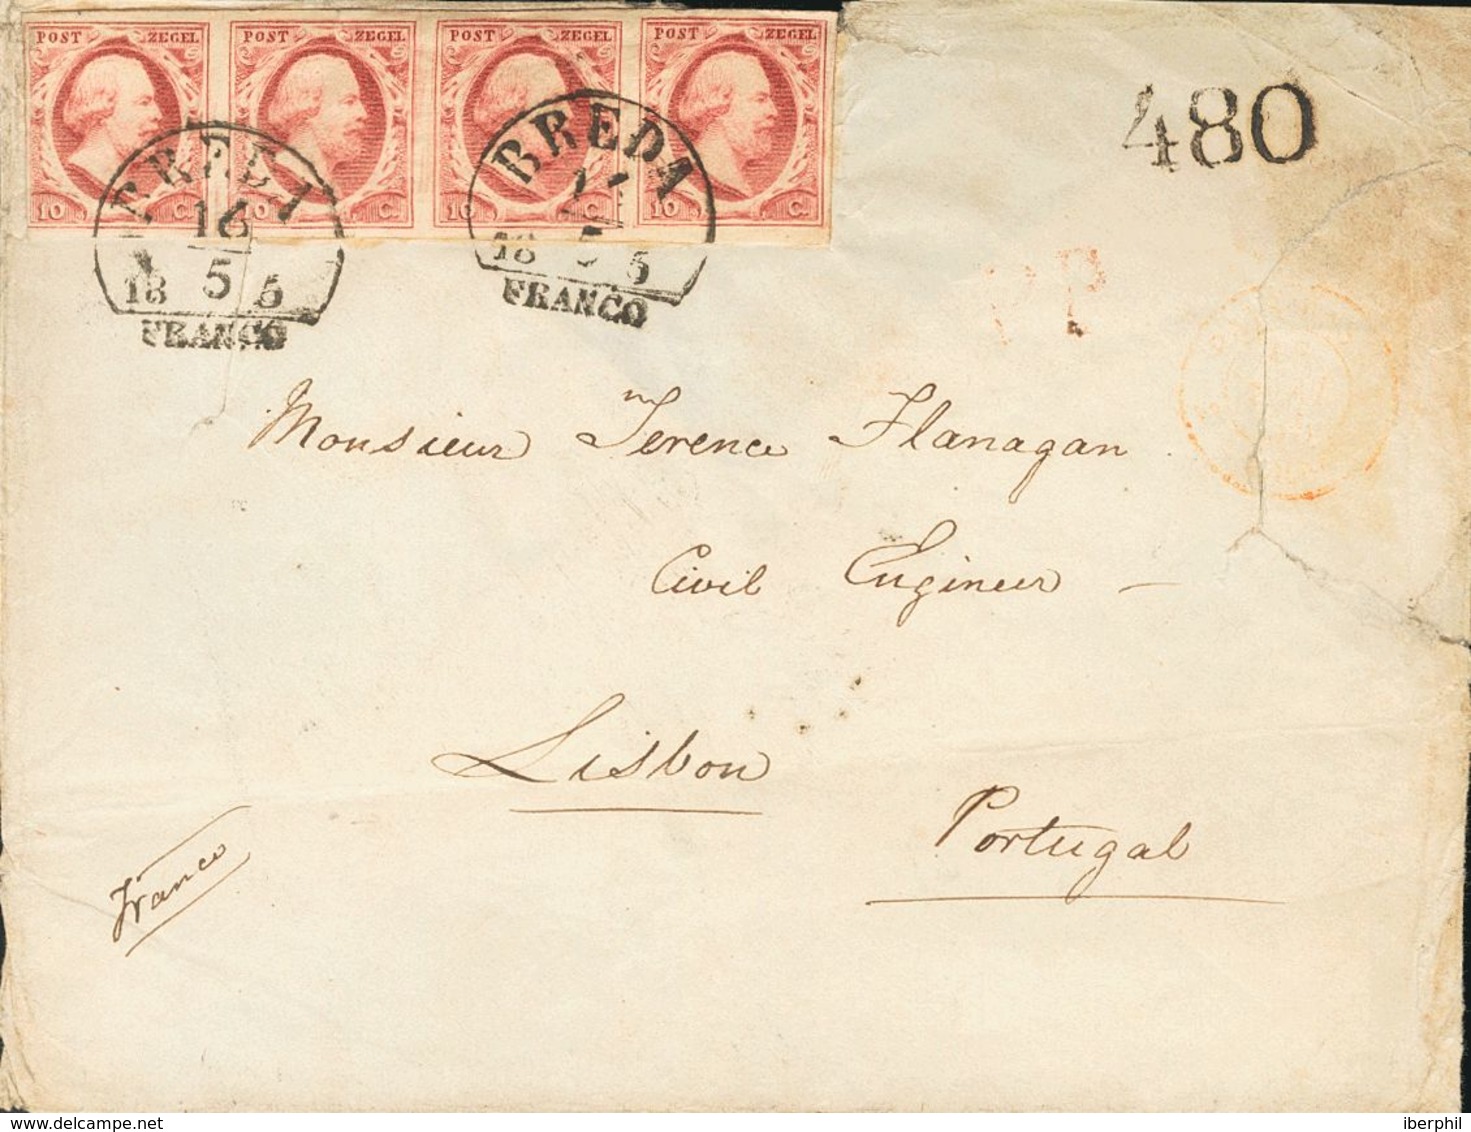 POST ZEGEL POST ZEGEL POST ZEGEL POST ZEGEL
10 C. 10 C. 10 C. 10 C.
BREDA
16
5
18 5
FRANCO
BREDA
18 5 5
FRANCO
480
P.P
Monsieur Terence Flanagan
Civil Engineer —
Lisbon
Portugal
Franco
iberphil